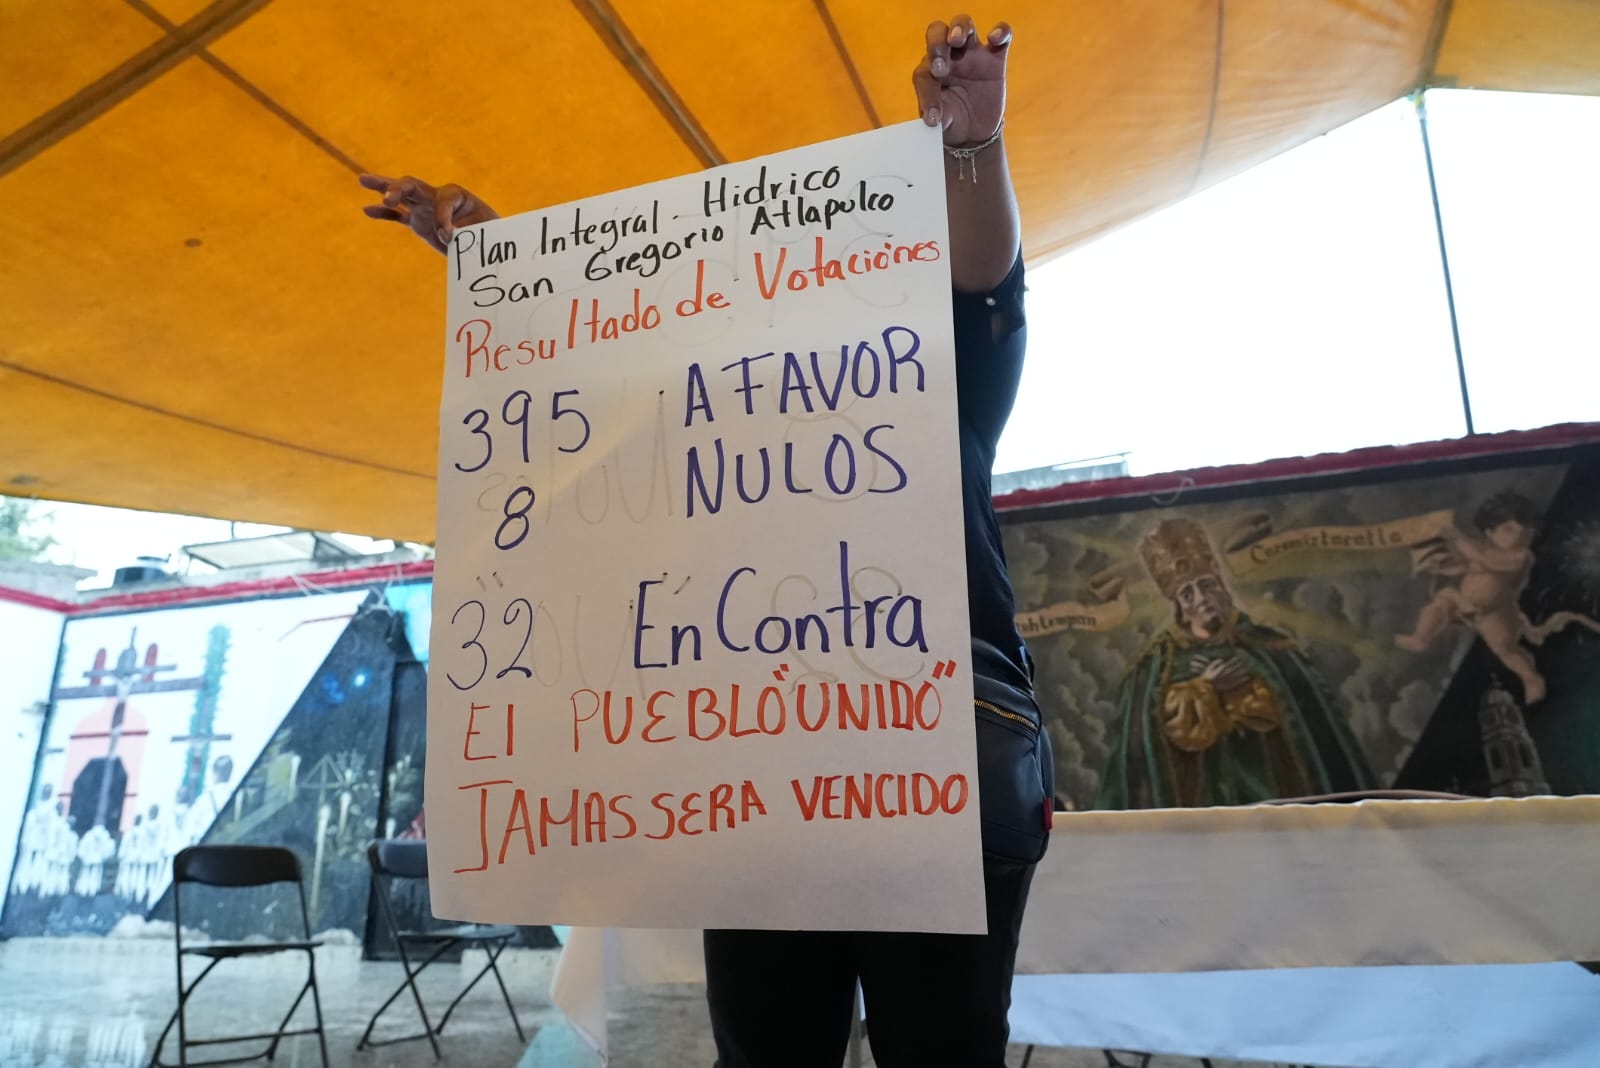 Plan Integral - Hidrico
San Gregorio Atlapulco
Resultado de Votaciones
395 A FAVOR
8 NULOS
32 En Contra
El PUEBLO "UNIDO"
JAMAS SERA VENCIDO